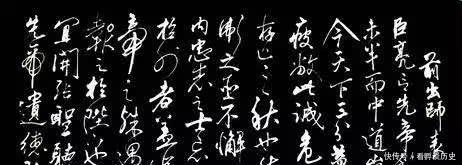 前出師表
臣亮言先帝
未半而中道
今天下三分
疲敝此誠危
存亡之秋也
衛之臣不懈
内忠志之士忘
於外者蓋
帝之殊遇
報之於陛也
宜開張聖聽
先帝遺德
快传号/看爵爷历史